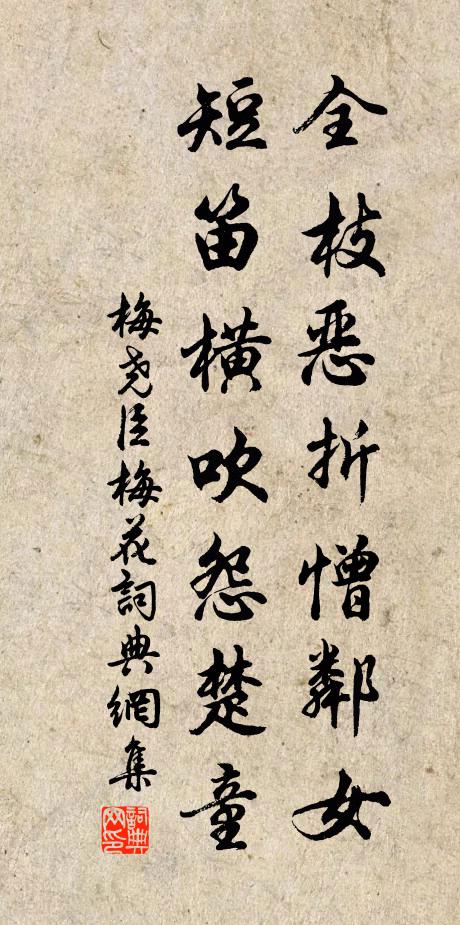 全枝恶折憎鄰女
短笛横吹怨楚童
梅尧臣梅花詞典網集
詞典
网印